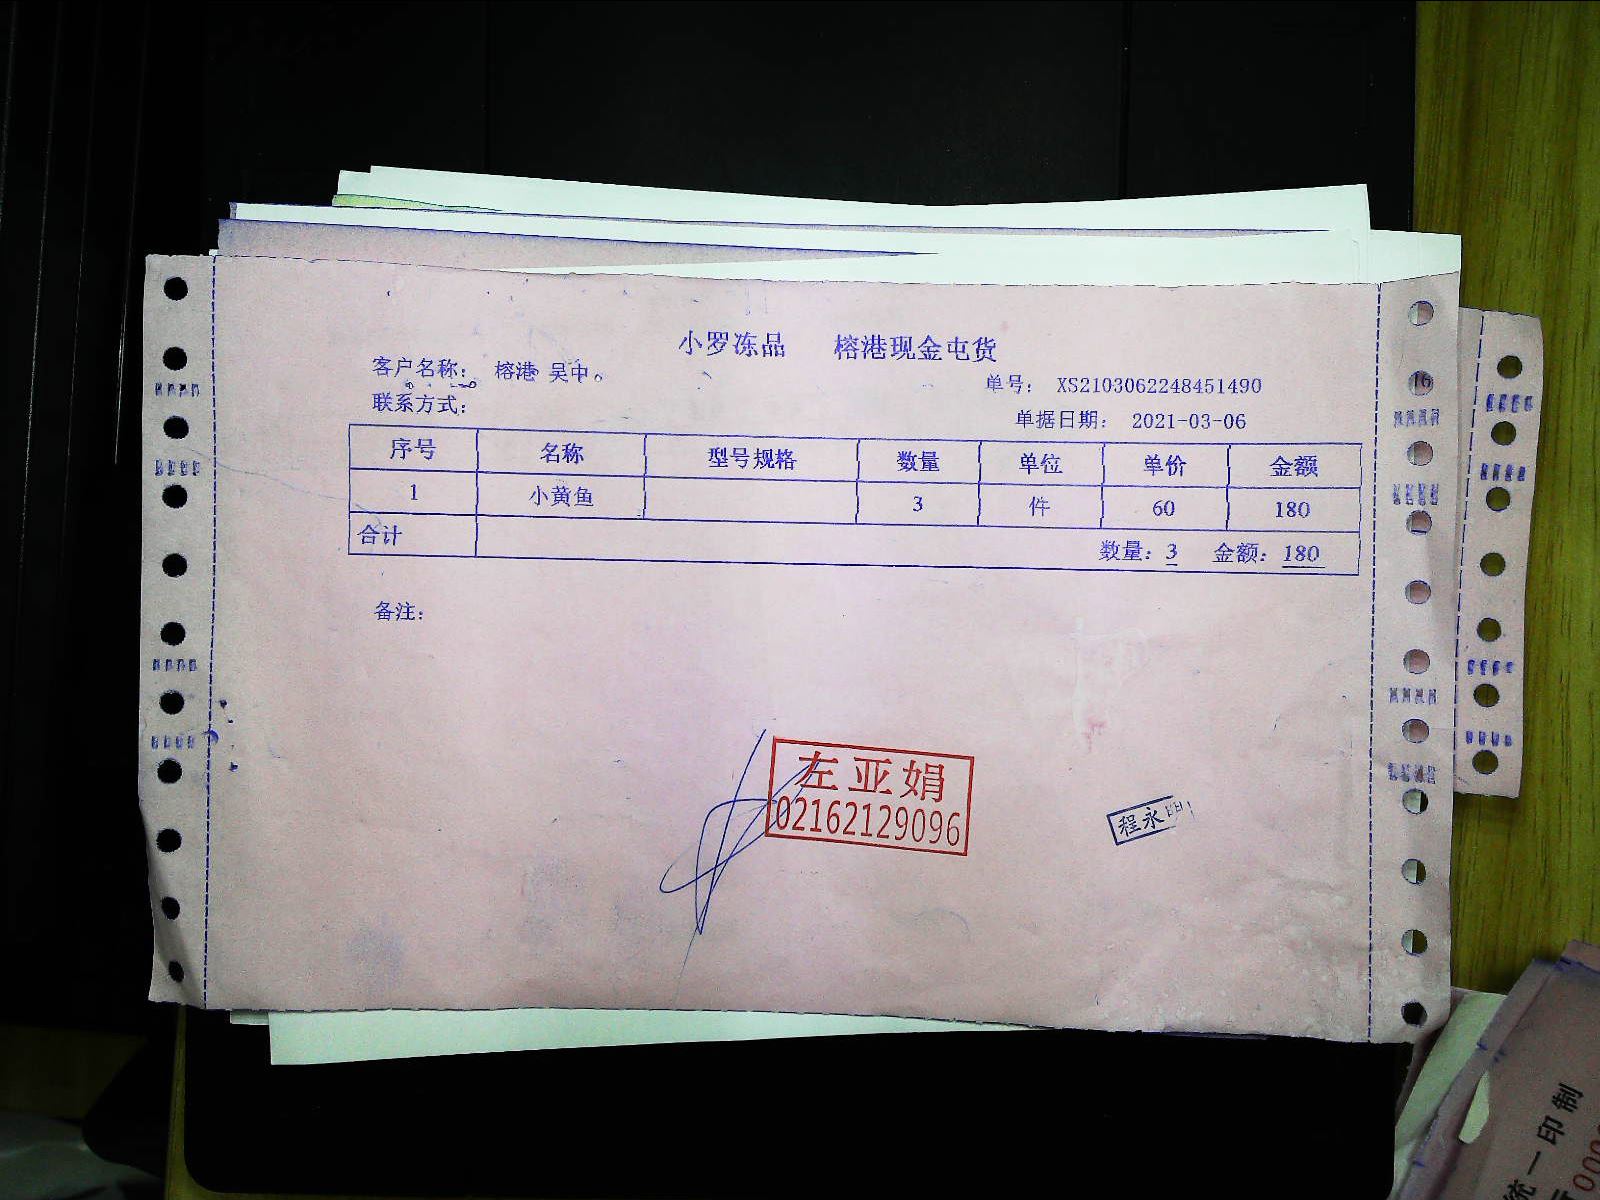 小罗冻品 榕港现金屯货
客户名称： 榕港 吴中。
单号： XS2103062248451490
联系方式：
单据日期： 2021-03-06
序号 名称 型号规格 数量 单位 单价 金额
1 小黄鱼 3 件 60 180
合计 数量：3 金额：180
备注：
左亚娟
02162129096
程永
16
统一印制